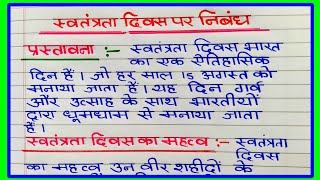 स्वतंत्रता दिवस पर निबंध
प्रस्तावना :- स्वतंत्रता दिवस भारत
का एक ऐतिहासिक
दिन है। जो हर साल 15 अगस्त को
मनाया जाता है। यह दिन गर्व
और उत्साह के साथ भारतीयों
द्वारा धूमधाम से मनाया जाता
है।
स्वतंत्रता दिवस का महत्व :- स्वतंत्रता
दिवस
का महत्व उन वीर शहीदों के